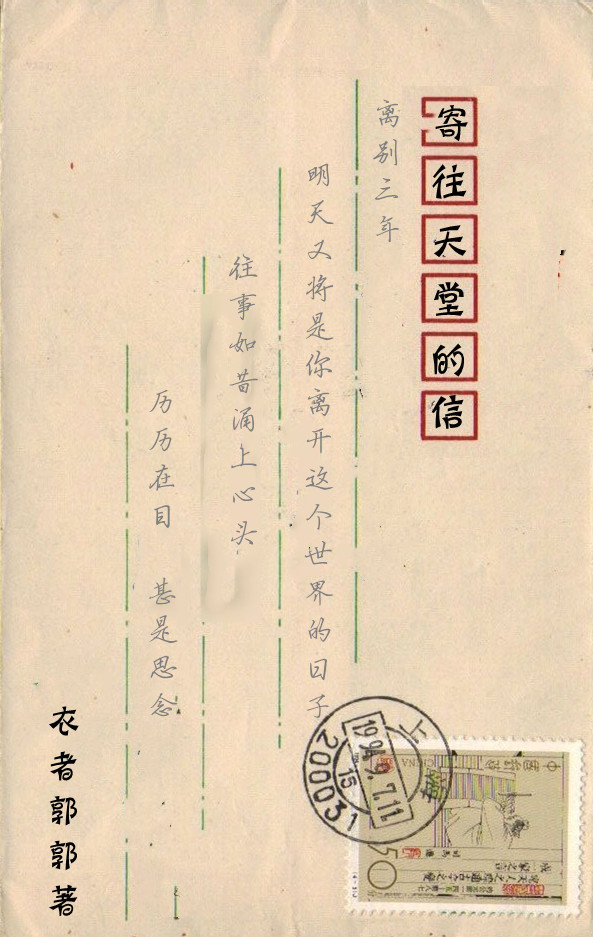 寄往天堂的信
离别三年
明天又将是你离开这个世界的日子
往事如昔涌上心头
历历在目 甚是思念
衣者郭郭著
上海
1994.9.7.11
15
200031
中国邮政
CHINA
司马迁
50